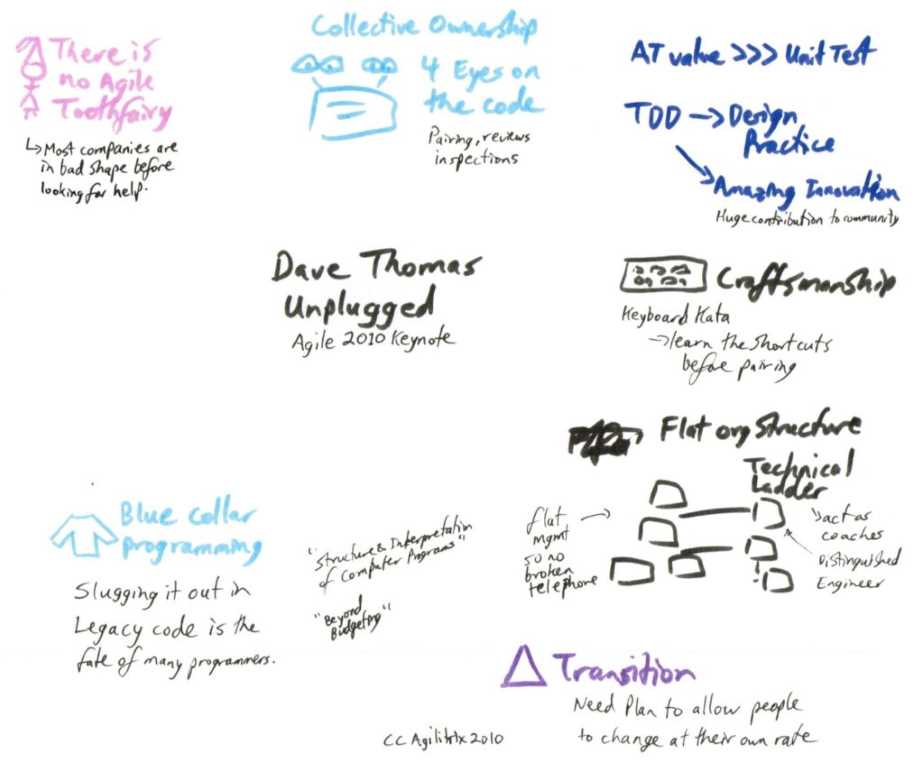 There is
no Agile
Toothfairy
↳ Most companies are
in bad shape before
looking for help.
Collective Ownership
4 Eyes on
the code
Pairing, reviews
inspections
AT value >>> Unit Test
TDD → Design
Practice
Amazing Innovation
Huge contribution to community
Dave Thomas
Unplugged
Agile 2010 Keynote
Craftsmanship
Keyboard Kata
→ learn the shortcuts
before pairing
Flat org structure
Technical
Ladder
flat
mgmt
so no
broken
telephone
act as
coaches
Distinguished
Engineer
Blue collar
programming
Slugging it out in
Legacy code is the
fate of many programmers.
"Structure & Interpretation
of Computer Programs"
"Beyond
Budgeting"
Transition
Need Plan to allow people
to change at their own rate
CC Agilitrix 2010